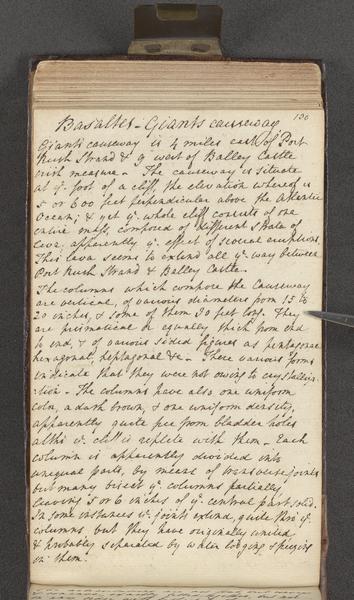 130
Basaltes - Giants causeway
Giants causeway is 4 miles east of Port
Rush Strand & 9 west of Balley Castle
irish measure. The causeway is situate
at ye. foot of a cliff, the elevation whereof is
5 or 600 feet perpendicular above the Atlantic
Ocean; & yet ye. whole cliff consists of one
entire mass, composed of different strata of
lava, apparently ye. effect of several eruptions.
This lava seems to extend all ye. way between
Port Rush Strand & Balley Castle.
The columns which compose the Causeway
are vertical, of various diameters from 15 to
20 inches, & some of them 90 feet long. They
are prismatical or equally thick from end
to end, & of various sided figures as pentagonal
hexagonal, heptagonal &c - These various forms
indicate that they were not owing to crystalliza
-tion - The columns have also one uniform
color, a dark brown, & one uniform density,
apparently quite free from bladder holes
altho' ye. cliff is replete with them - Each
column is apparently divided into
unequal parts, by means of transverse joints
but many bisect ye. columns partially
leaving 5 or 6 inches of ye. central part solid.
In some instances ye. joints extend quite thro' ye.
columns, but they have originally united
& probably separated by water lodging & freezing
in them.